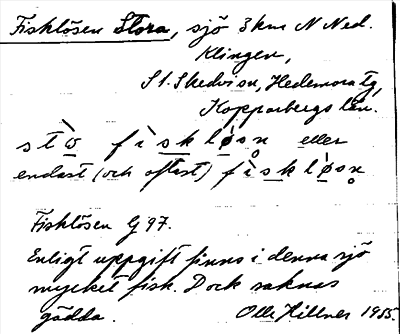 Fisklösen Stora, sjö 3 km N Ned.
Klingen,
St. Skedvi sn, Hedemora tg,
Kopparbergs län.
eller
endast (och oftast)
Fisklösen G 97.
Enligt uppgift finns i denna sjö
mycket fisk. Dock saknas
gädda. Olle Hillner 1955.